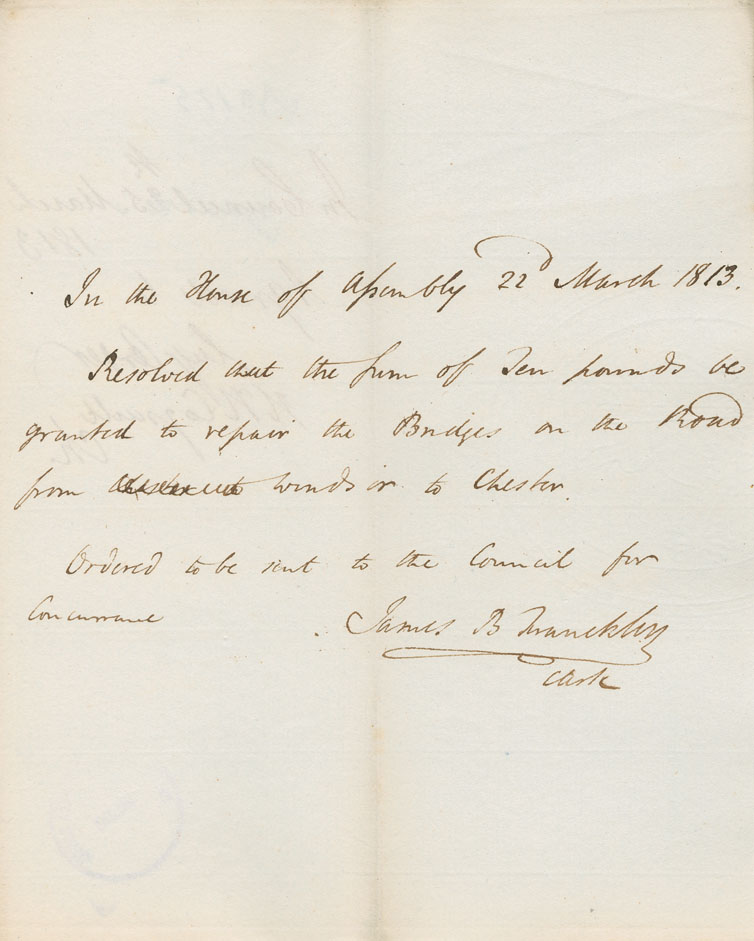 In the House of Assembly 22d March 1813.
Resolved that the sum of Ten pounds be
granted to repair the Bridges on the Road
from Windsor to Chester.
Ordered to be sent to the Council for
Concurrance
James B Franckley
Clerk